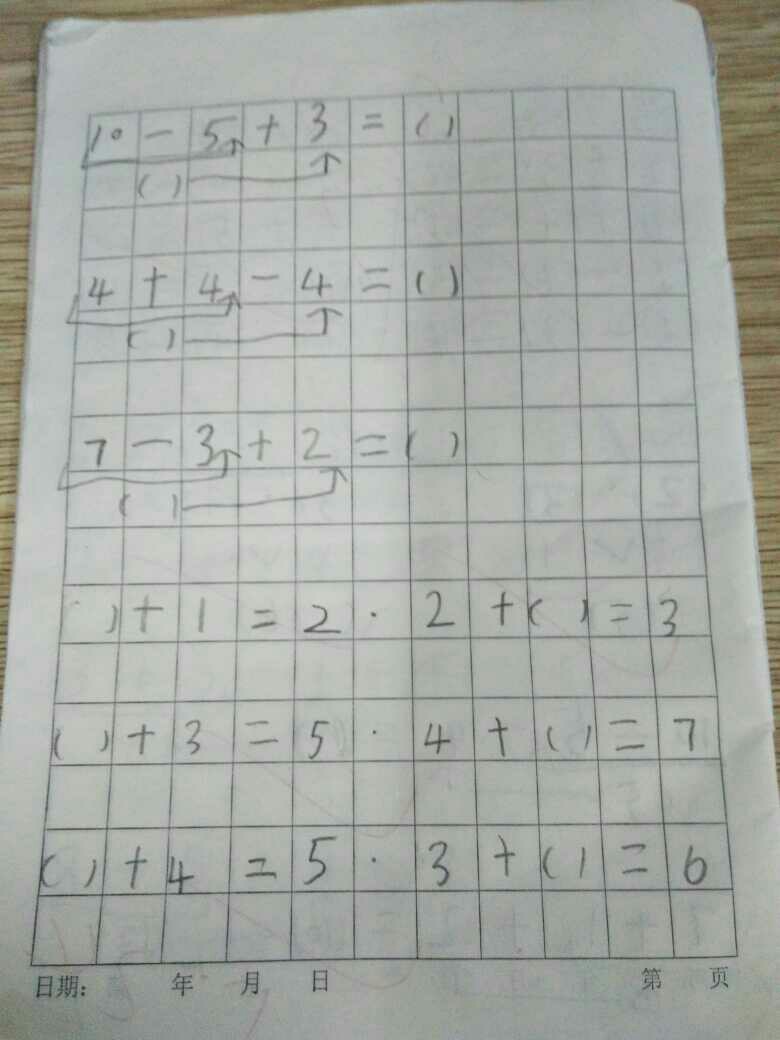 10 - 5 + 3 = ( )
( )
4 + 4 - 4 = ( )
( )
7 - 3 + 2 = ( )
( )
( ) + 1 = 2 · 2 + ( ) = 3
( ) + 3 = 5 · 4 + ( ) = 7
( ) + 4 = 5 · 3 + ( ) = 6
日期： 年 月 日 第 页